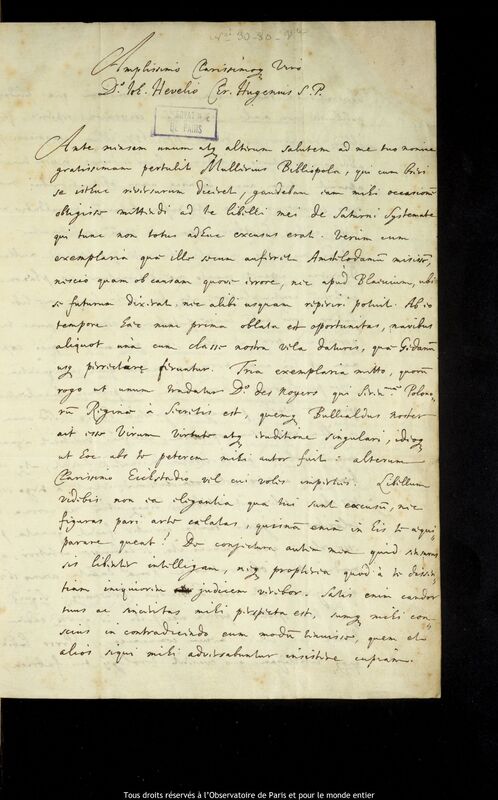 Amplissimo Clarissimoq Viro
Do. Joh. Hevelio Chr. Hugenius S. P.
DE PARIS
Ante mensem unum atq alterum salutem ad me tuo nomine
gratissimam pertulit Mullerius Bibliopola, qui cum brevi
se istuc reversurum diceret, gaudebam eam mihi occasionem
obtigisse mittendi ad te libelli mei de Saturni Systemate
qui tunc non totus adhuc excusus erat. Verum cum
exemplaria quae ille secum auferret Amstelodamum misissem,
nescio quam ob causam quove errore, nec apud Blaeuium, ubi
se futurum dixerat nec alibi usquam reperiri potuit. Ab eo
tempore haec nunc prima oblata est opportunitas, navibus
aliquot una cum classe nostra vela daturis, quae Gedanum
usq perrecturae feruntur. Tria exemplaria mitto, quorum
rogo ut unum tradatur Do. des Noyers qui Seren. Polono-
rum Reginae à Secretis est, quemq Bullialdus noster
ait esse Virum virtute atq eruditione singulari, ideoq
ut hoc abs te peterem mihi autor fuit: alterum
Clarissimo Eichstadio vel cui voles impertias. Libellum
videbis non ea elegantia qua tui sunt excusum, nec
figuras pari arte caelatas, quisnam enim in his te aequi-
parare queat? De conjectura autem mea quid
libenter intelligam, neq propterea quod à te dissen-
tiam iniquiorem judicem verebor. Satis enim candor
tuus ac mihi perspecta est, sumq mihi con-
scius in contradicendo eum modum tenuisse, quem et
alios siqui mihi adversabuntur insistere cupiam.
Tous droits réservés à l'Observatoire de Paris et pour le monde entier